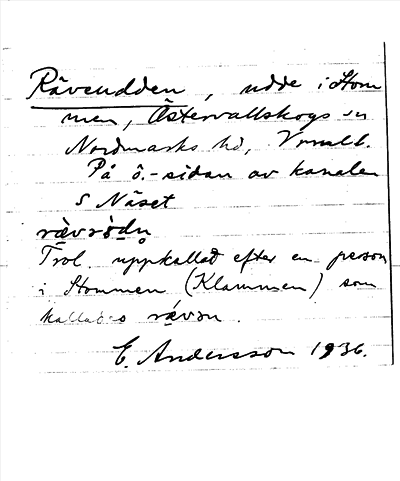 Rävudden, udde i Stom
men, Östervallskogs sn
Nordmarks hd, Vrmll.
På ö.-sidan av kanalen
S Näset
rævròdn
Trol. uppkallad efter en person
i Stommen (Klammen) som
kallades rǽvon.
E. Andersson 1936.